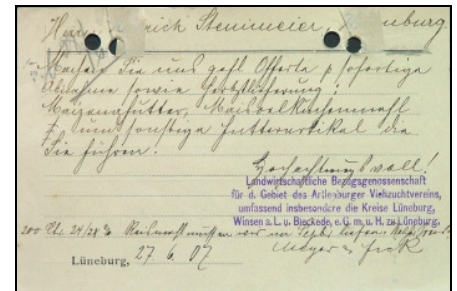 Herrn Heinrich Steinmeier, Lüneburg.
Machen Sie uns gefl Offerte p sofortige
Abnahme sowie Herbstlieferung:
Maizenafutter, Maisoelkuchenmehl
u. um sonstige Futterartikel die
Sie führen.
Hochachtungsvoll!
Landwirtschaftliche Bezugsgenossenschaft
für d. Gebiet des Artlenburger Viehzuchtvereins,
umfassend insbesondere die Kreise Lüneburg,
Winsen a. L. u. Bleckede, e. G. m. u. H. zu Lüneburg.
200 Ctr. 24/28 % Reismehl müssen wir im Sept.
Lüneburg, 27. 6. 07 Meyer